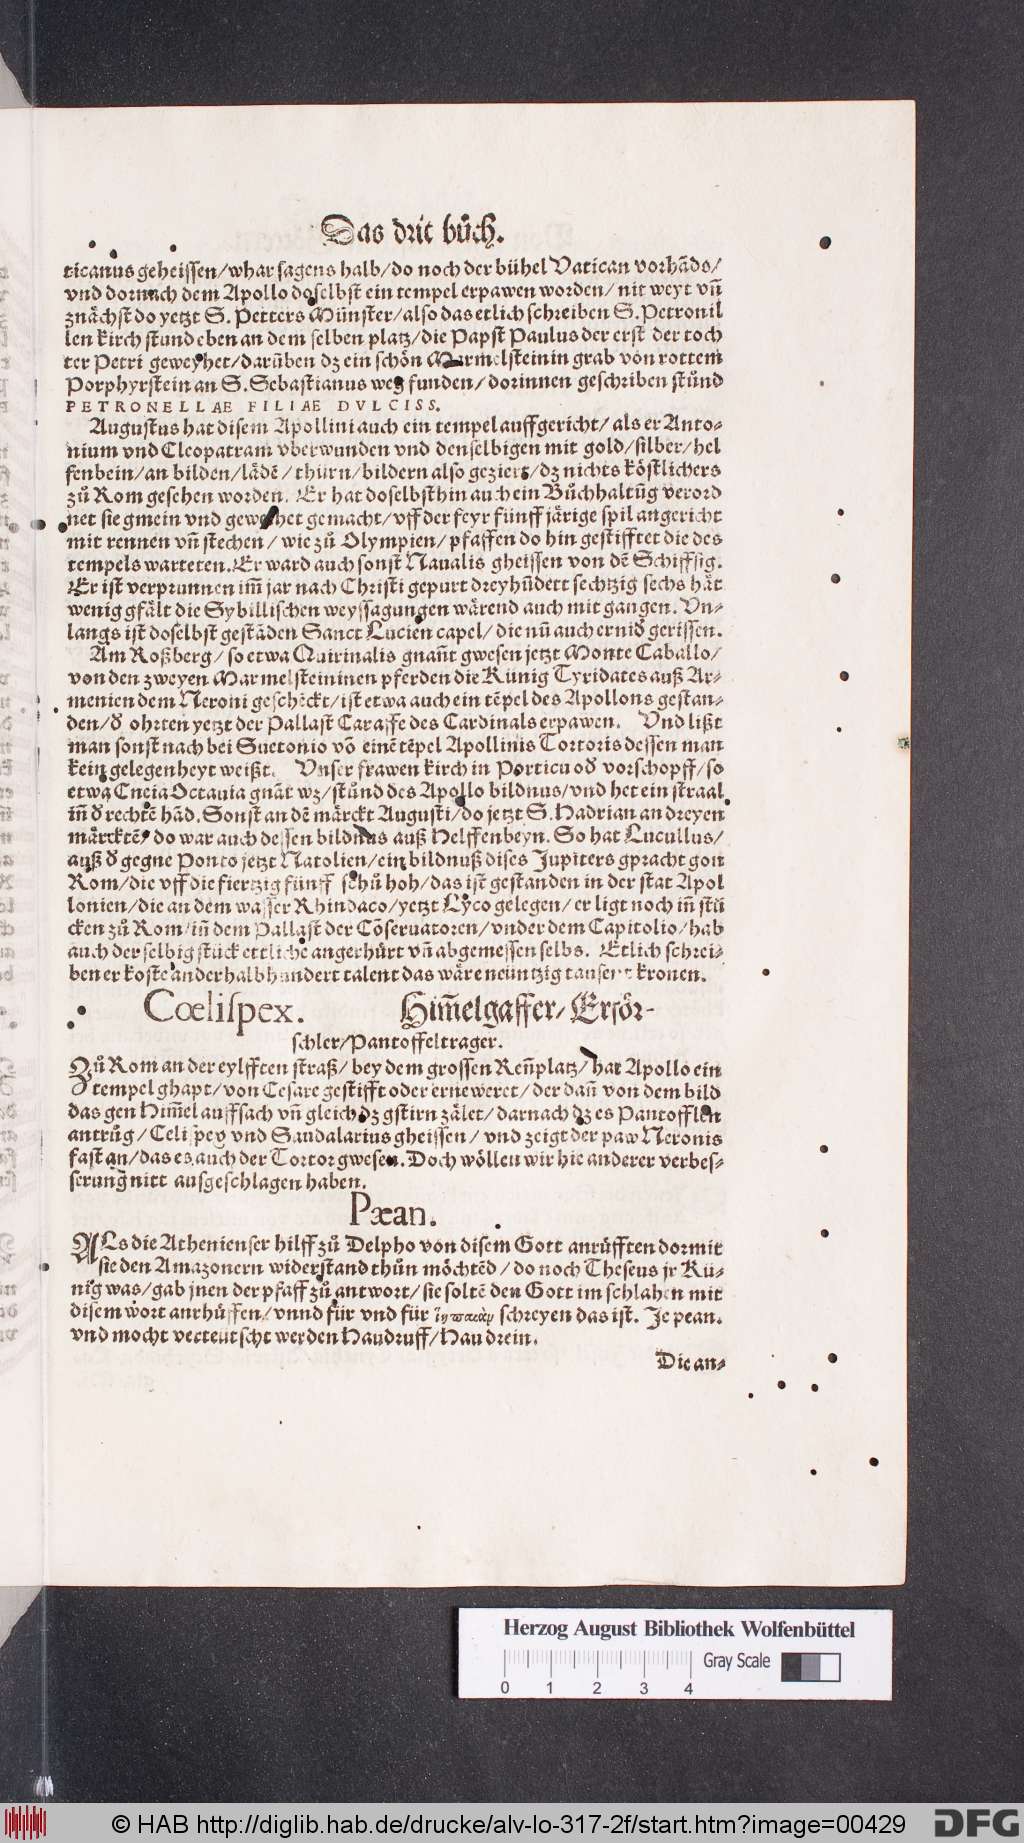 Das drit bůch.
ticanus geheissen/whar sagens halb/do noch der bühel Vatican vorhãds/
vnd dornach dem Apollo doselbst ein tempel erpawen worden/ nit weyt vñ
znächst do yetzt S. Petters Münster/also das etlich schreiben S. Petronil
len kirch stund eben an dem selben platz/die Papst Paulus der erst der toch
ter Petri geweyhet/darüben dz ein schön Marmelsteinin grab von rottem
Porphyrstein an S. Sebastianus weg funden/ dorinnen geschriben stůnd
PETRONELLAE FILIAE DVLCISS.
Augustus hat disem Apollini auch ein tempel auffgericht/ als er Anto-
nium vnd Cleopatram vberwunden vnd denselbigen mit gold/silber/hel
fenbein/an bilden/lädẽ/thürn/bildern also geziert/dz nichts köstlichers
zů Rom gesehen worden. Er hat doselbsthin auch ein Bůchhaltũg verord
net sie gmein vnd geweyhet gemacht/vff der feyr fünff järige spil angericht
mit rennen vñ stechen/ wie zů Olympien/pfaffen do hin gestifftet die des
tempels warteten. Er ward auch sonst Naualis gheissen von dẽ Schiffsig.
Er ist verprunnen im̃ jar nach Christi gepurt dreyhũdert sechtzig sechs hät
wenig gfält die Sybillischen weyssagungen wärend auch mit gangen. Vn-
langs ist doselbst gestãden Sanct Lucien capel/ die nũ auch ernid̃ gerissen.
Am Roßberg/so etwa Quirinalis gnañt gwesen jetzt Monte Caballo/
von den zweyen Marmelsteininen pferden die Künig Tyridates auß Ar-
menien dem Neroni geschẽckt/ist etwa auch ein tẽpel des Apollons gestan-
den/d̃ ohrten yetzt der Pallast Caraffe des Cardinals erpawen. Vnd lißt
man sonst nach bei Suetonio võ einẽ tẽpel Apollinis Tortoris dessen man
kein gelegenheyt weißt. Vnser frawen kirch in Porticu od̃ vorschopff/so
etwa Cneia Octauia gnãt wz/stůnd des Apollo bildnus/vnd het ein straal
iñ d̃ rechtẽ hãd. Sonst an dẽ märckt Augusti/do jetzt S. Hadrian an dreyen
märcktẽ/do war auch dessen bildnus auß Helffenbeyn. So hat Lucullus/
auß d̃ gegne Ponto jetzt Natolien/ein bildnuß dises Jupiters gpracht gon
Rom/die vff die fiertzig fünff schů hoh/das ist gestanden in der stat Apol
lonien/die an dem wasser Rhindaco/yetzt Lyco gelegen/er ligt noch iñ stü
cken zů Rom/iñ dem Pallast der Cõseruatoren/vnder dem Capitolio/hab
auch der selbig stück ettliche angerhürt vñ abgemessen selbs. Etlich schrei-
ben er koste anderhalbhundert talent das wäre neüntzig tausent kronen.
Cœlispex. Him̃elgaffer/Erför-
schler/Pantoffeltrager.
Zů Rom an der eylfften straß/bey dem grossen Reñplatz/hat Apollo ein
tempel ghapt/von Cesare gestifft oder erneweret/der dañ von dem bild
das gen Him̃el auffsach vñ gleich dz gstirn zälet/darnach dz es Pantofflen
antrůg/Celispex vnd Sandalarius gheissen/ vnd zeigt der paw Neronis
fast an/das es auch der Tortor gwesen. Doch wöllen wir hie anderer verbes-
serung nitt ausgeschlagen haben.
Pæan.
ALs die Athenienser hilff zů Delpho von disem Gott anrüfften dormit
sie den Amazonern widerstand thůn möchtẽd/do noch Theseus jr Kü-
nig was/gab jnen der pfaff zů antwort/sie soltẽ den Gott im schlahen mit
disem wort anrhůffen/vnnd für vnd für ἰὴ παιὰν schreyen das ist. Je pean.
vnd mocht verteütscht werden Haudruff/Hau drein.
Die an-
Herzog August Bibliothek Wolfenbüttel
Gray Scale
0 1 2 3 4
© HAB http://diglib.hab.de/drucke/alv-lo-317-2f/start.htm?image=00429
DFG